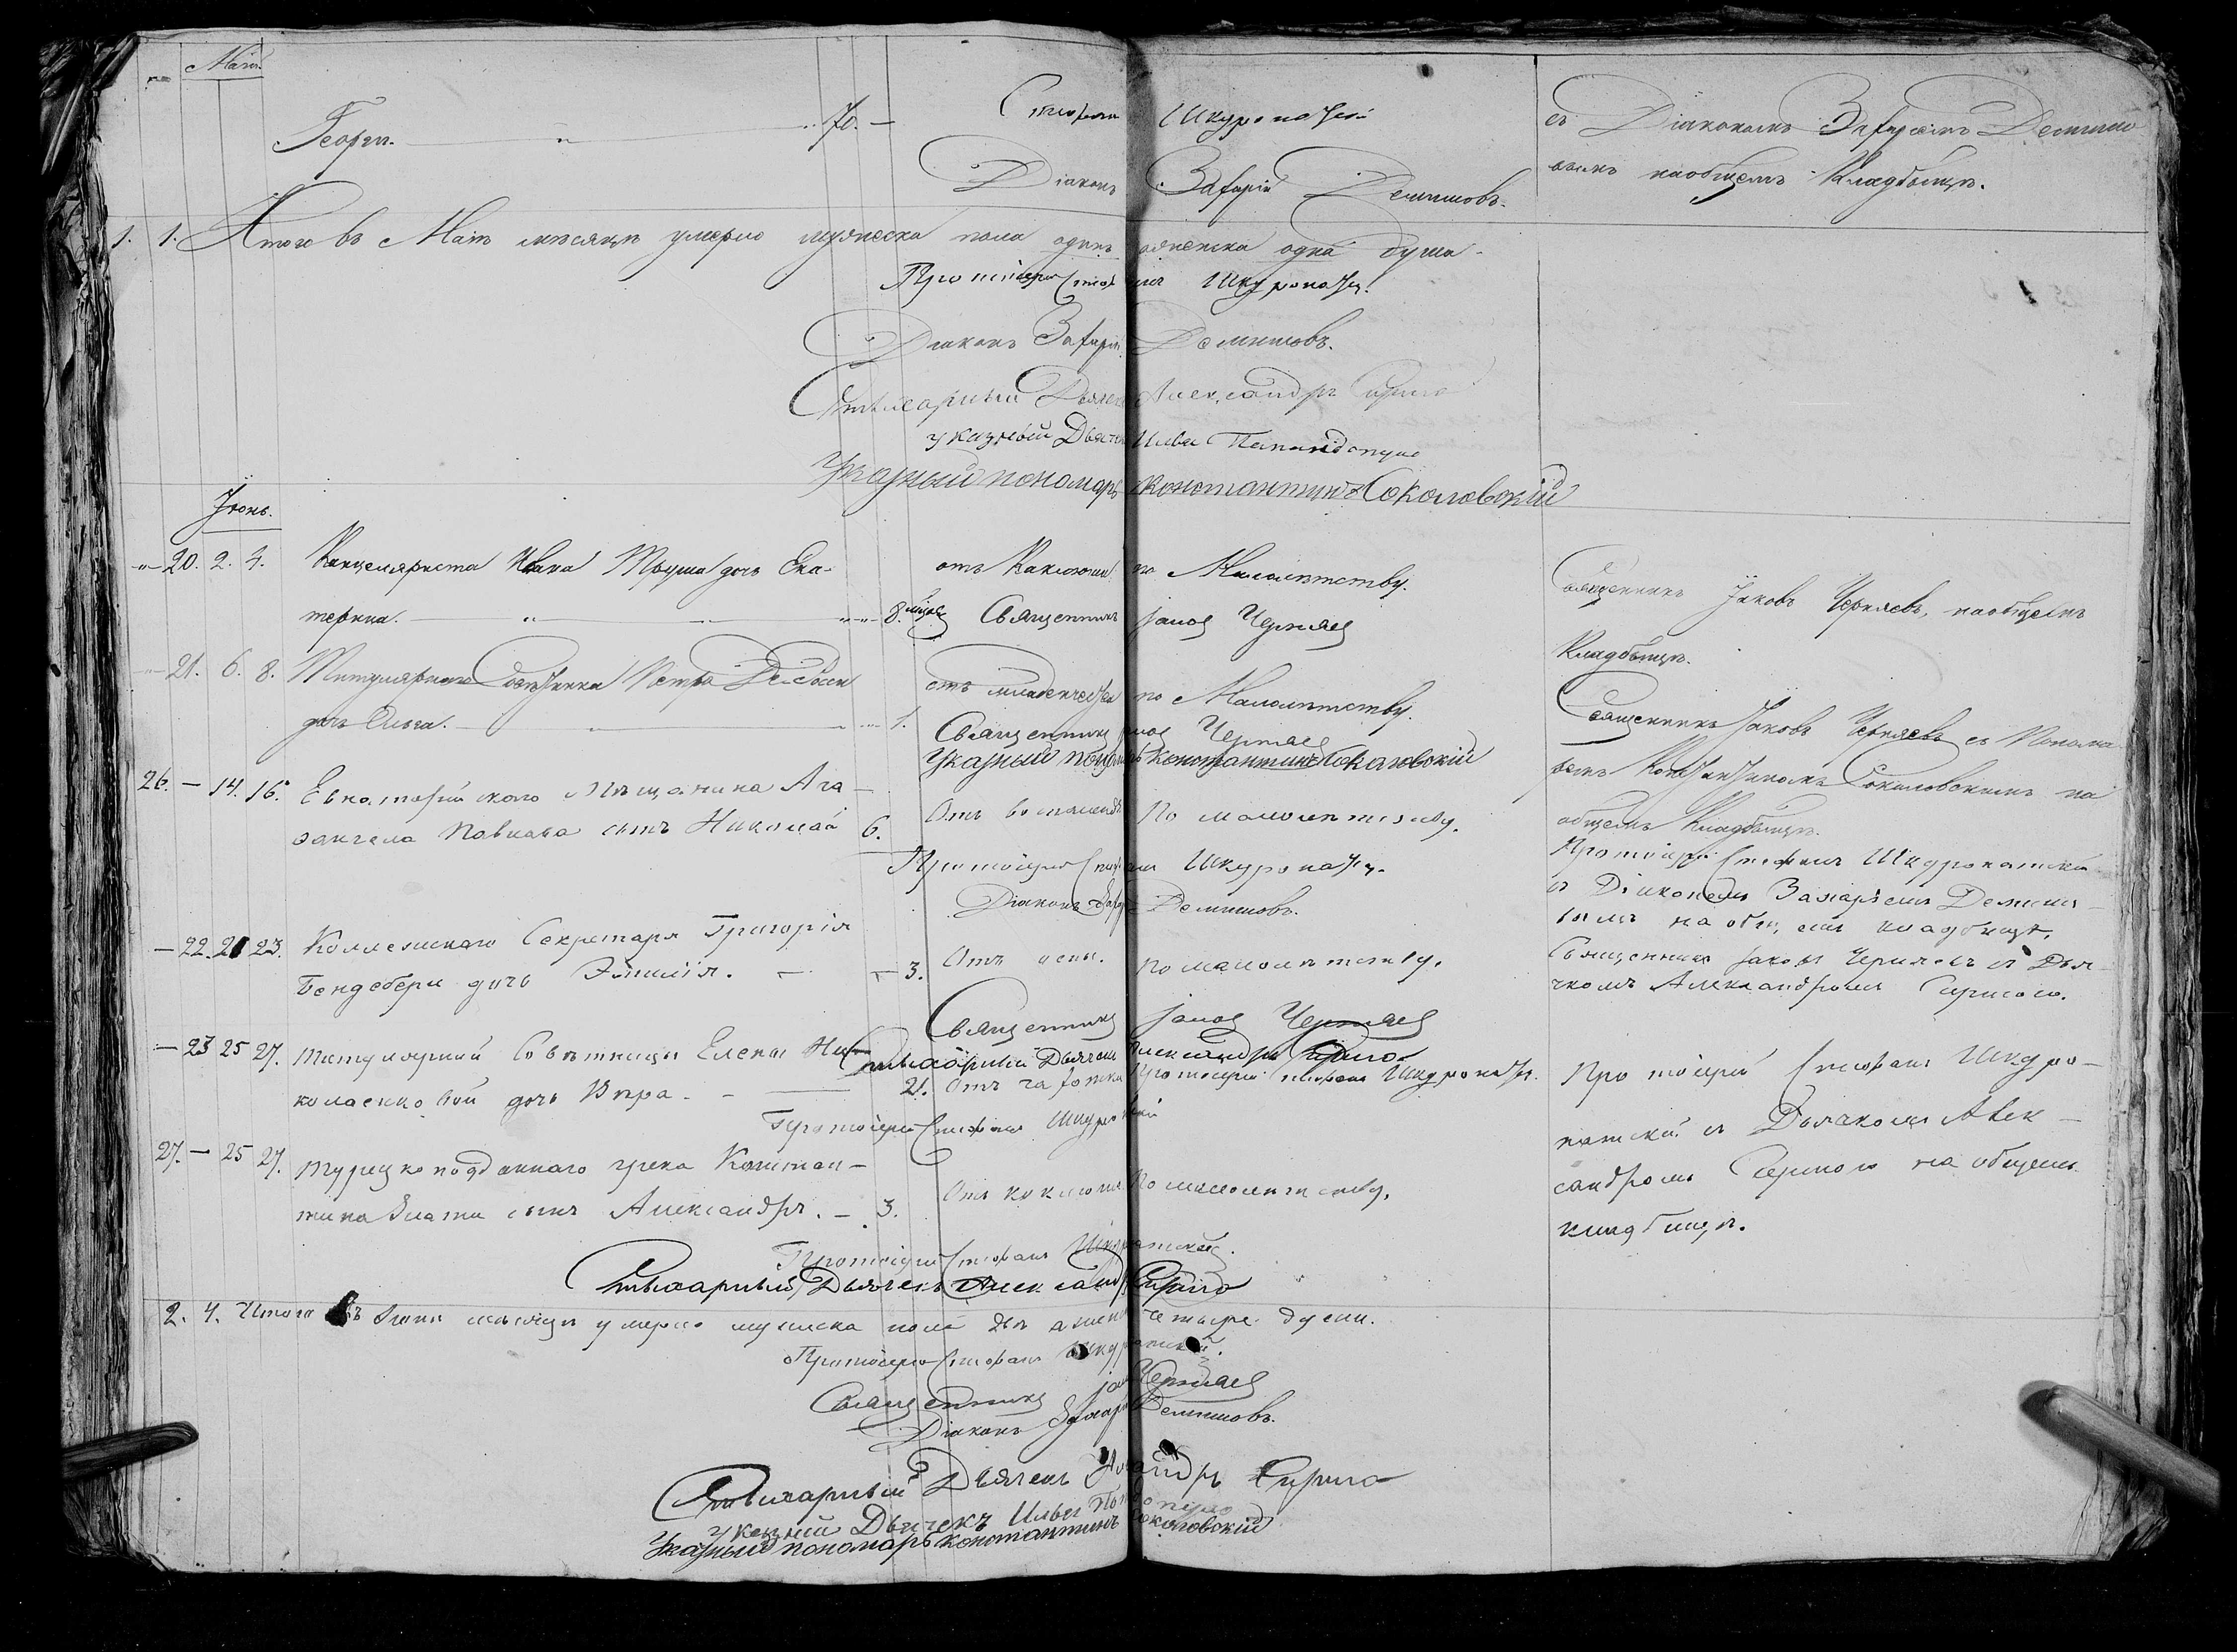 Май.
Георги. — " — 70. — Стефанъ Шкуропатскій съ Діакономъ Захаріемъ Демишо-
Діаконъ Захарій Демишовъ. вымъ на общемъ Кладбищѣ.
1. 1. Итого въ Маѣ мѣсяцѣ умерло мужеска пола одинъ женска одна душа.
Протоіерей Стефанъ Шкуропатск.
Діаконъ Захарій Демишовъ.
Стихарный Дьячекъ Александръ
указный Дьячекъ Илья
Указный пономарь Константинъ Соколовскій
Іюнь.
20. 2. 4. Канцеляриста Ивана дочь Ека- отъ Коклюша по Малолѣтству. Священникъ Іаковъ Черняевъ, на общемъ
терина. — 8. мѣсяц Священникъ Іаковъ Черняевъ Кладбищѣ.
21. 6. 8. Титулярнаго Совѣтника Петра отъ младенческой по Малолѣтству. Священникъ Іаковъ Черняевъ съ Понома-
дочь Ольга. — 1. Священникъ Іаковъ Черняевъ ремъ Константиномъ Соколовскимъ на
Указный пономарь Константинъ Соколовскій общемъ Кладбищѣ.
26. — 14. 16. Евпаторійского Мѣщанина Ага- Отъ По малолѣтству. Протоіерей Стефанъ Шкуропатскій
ѳангела Павлова сынъ Николай 6. Протоіерей Стефанъ Шкуропатск. съ Діакономъ Захаріемъ Демишо-
Діаконъ Захарій Демишовъ. вымъ на общемъ кладбищѣ.
— 22. 21 23. Коллежскаго Секретаря Григорія Отъ оспы. По малолѣтству. Священникъ Іаковъ Черняевъ съ Дья-
Бендебери дочь Эмилія. — 3. Священникъ Іаковъ Черняевъ чкомъ Александромъ
Стихарный Дьячекъ Александръ
— 23 25 27. Титулярной Совѣтницы Елены Ни- Протоіерей Стефанъ Шкуропатск. Протоіерей Стефанъ Шкуро-
колаенковой дочь Вѣра. — 21. Отъ чахотки патскій съ Дьячкомъ Алек-
Протоіерей Стефанъ Шкуропатскій
27. — 25 27. Турецкоподданнаго грека Констан- Отъ коклюша По малолѣтству. сандромъ на общемъ
тина сынъ Александръ. — 3. кладбищѣ.
Протоіерей Стефанъ Шкуропатскій.
Стихарный Дьячекъ Александръ
2. 4. Итого въ Іюнѣ мѣсяцѣ умерло мужеска пола два женска четыре души.
Протоіерей Стефанъ Шкуропатскій.
Священникъ Іаковъ Черняевъ
Діаконъ Захарій Демишовъ.
Стихарный Дьячекъ Александръ
указный Дьячекъ Илья
Указный пономарь Константинъ Соколовскій